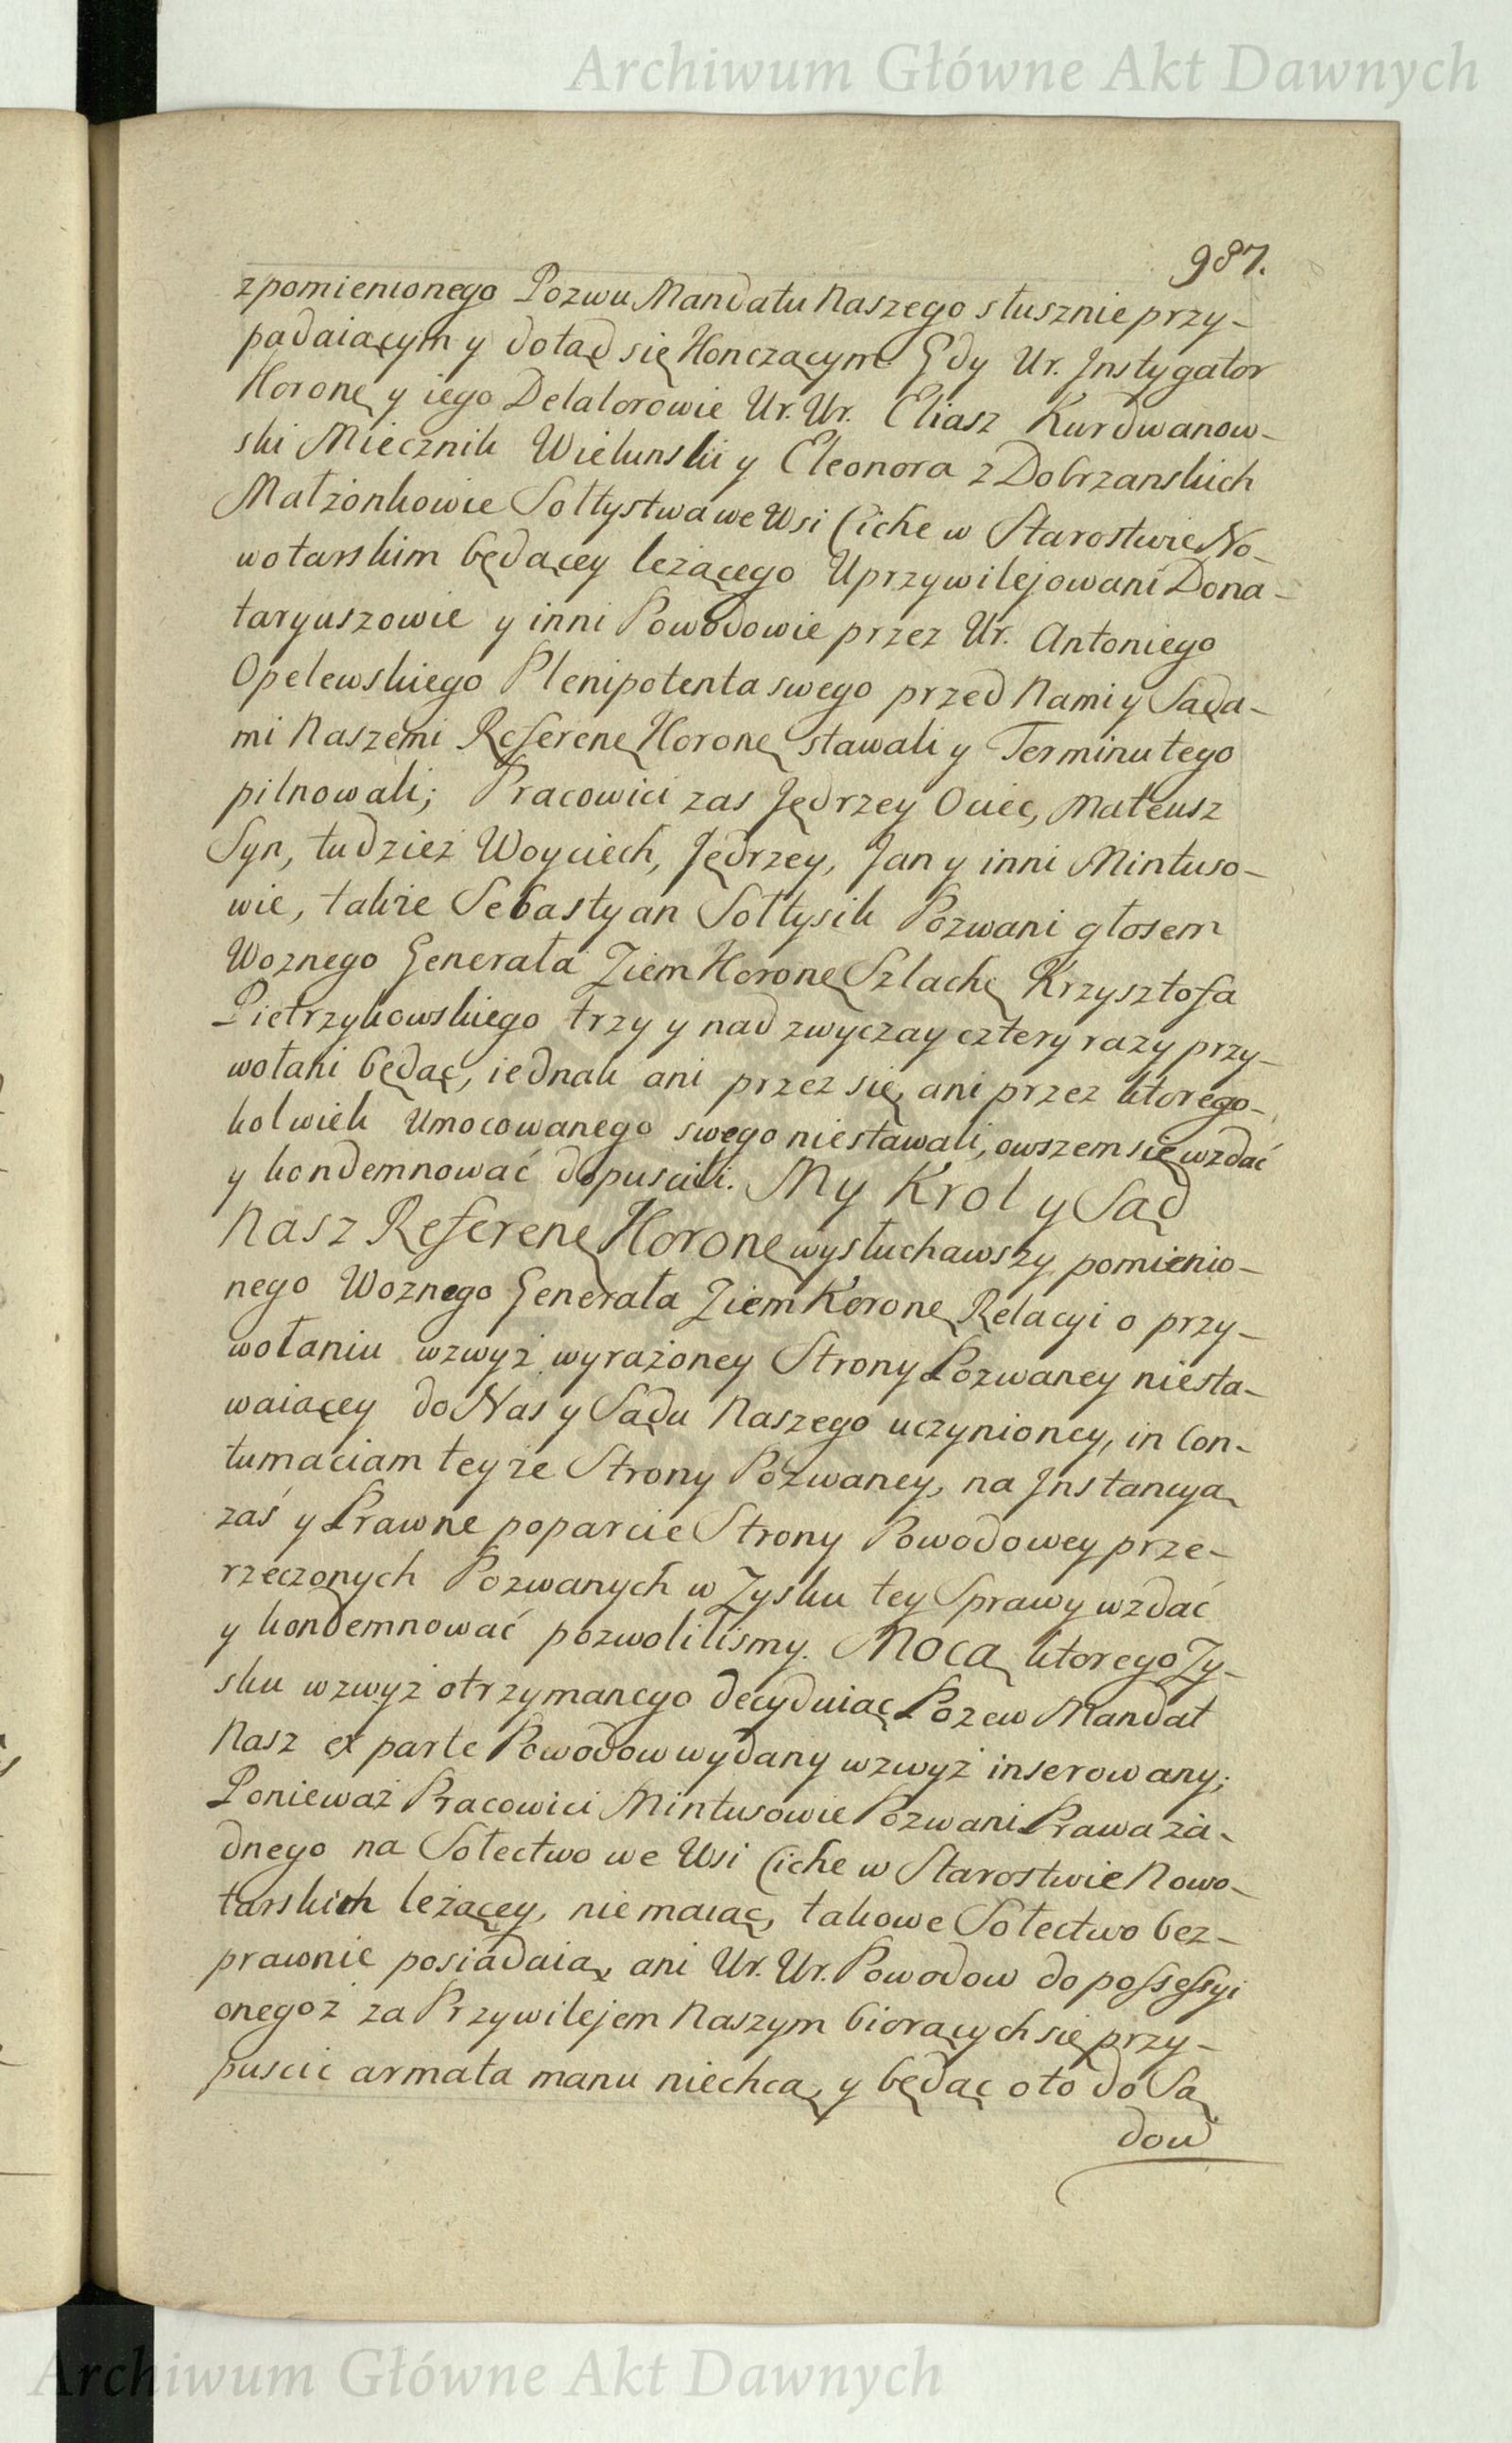 Archiwum Główne Akt Dawnych
987.
z pomienionego Pozwu Mandatu Naszego słusznie przy-
padaiącym y dotąd się Kończącym. Gdy Ur. Jnstygator
Koronę y iego Delatorowie Ur. Ur. Eliasz Kurdwanow-
ski Miecznik Wielunski y Eleonora z Dobrzanskich
Małżonkowie Sołtystwa we Wsi Ciche w Starostwie No-
wotarskim będącey leżącego Uprzywilejowani Dona-
taryuszowie y inni Powodowie przez Ur. Antoniego
Opelewskiego Plenipotenta swego przed Nami y Sąda-
mi Naszemi Referenę Koronę stawali y Terminu tego
pilnowali; Pracowici zas Jędrzey Ociec, Mateusz
Syn, tudzież Woyciech, Jędrzey, Jan y inni Mintuso-
wie, także Sebastyan Sołtysik Pozwani głosem
Woznego Generała Ziem Koronę Szlachę Krzysztofa
Pietrzykowskiego trzy y nad zwyczay cztery razy przy-
wołani będąc, iednak ani przez się, ani przez ktorego-
kolwiek Umocowanego swego niestawali, owszem się wzdać
y kondemnować dopuscili. My Krol y Sąd
Nasz Referenę Koronę wysłuchawszy pomienio-
nego Woznego Generała Ziem Koronę Relacyi o przy-
wołaniu wzwyż wyrażoney Strony Pozwaney niesta-
waiącey do Nas y Sądu Naszego uczynioney, in Con-
tumaciam teyże Strony Pozwaney, na Jnstancyą
zaś y Prawne poparcie Strony Powodowey prze-
rzeczonych Pozwanych w Zysku tey Sprawy wzdać
y kondemnować pozwolilismy. Mocą ktorego Zy-
sku wzwyż otrzymanego decyduiąc Pozew Mandat
Nasz ex parte Powodow wydany wzwyż inserowany;
Ponieważ Pracowici Mintusowie Pozwani Prawa ża-
dnego na Sołectwo we Wsi Ciche w Starostwie Nowo-
tarskim leżącey, nie maiąc, takowe Sołectwo bez-
prawnie posiadaią, ani Ur. Ur. Powodow do possessyi
onegoż za Przywilejem Naszym biorących się przy-
puscic armata manu niechcą, y będąc oto do Są
dow
Archiwum Główne Akt Dawnych